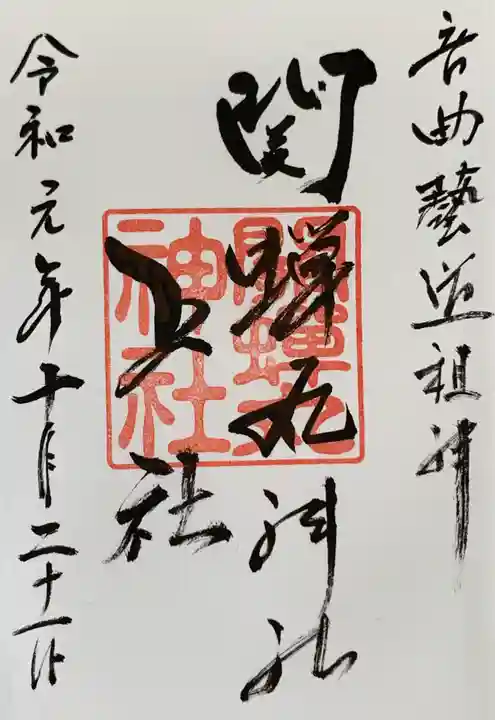 音曲藝道祖神
関蝉丸神社
上社
令和元年十月二十一日
関蝉丸
神社